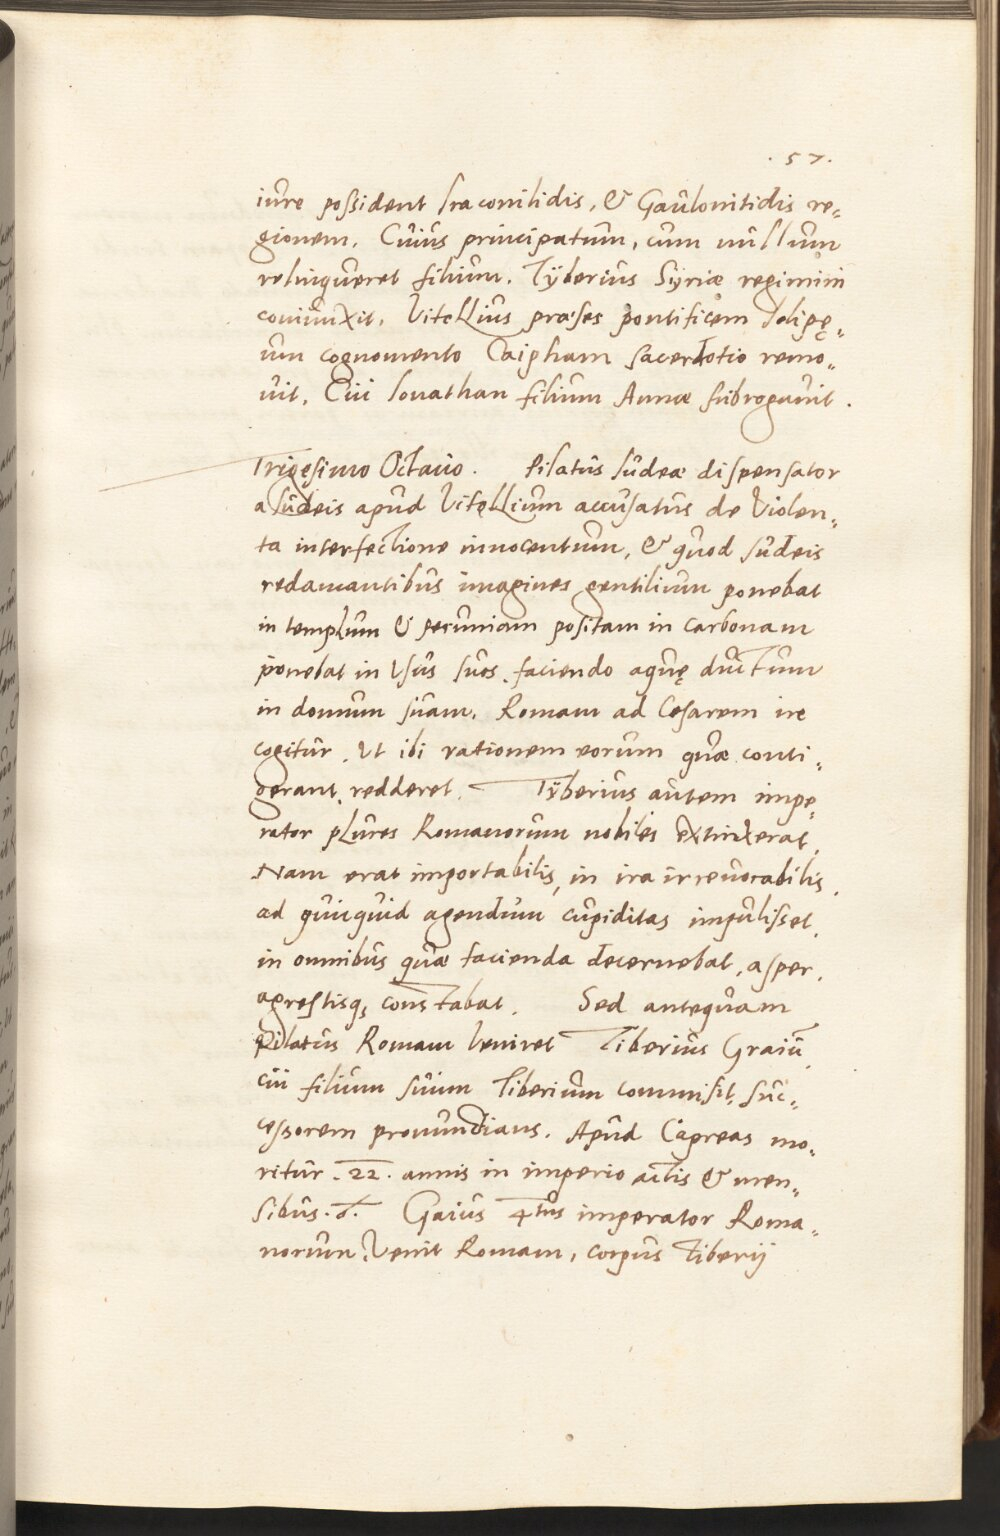 . 57.
iure possident Traconitidis, & Gaulonitidis re=
gionem. Cuius principatum, cum nullum
relinqueret filium. Tyberius Syriæ regimini
coniunxit. Vitellius præses pontificem
um cognomento Caipham sacerdotio remo=
uit. Cui Ionathan filium Annæ subrogauit.
Trigesimo Octauo. Pilatus Iudeæ dispensator
a Iudeis apud Vitellium accusatus de Violen=
ta interfectione innocentum, & quod Iudeis
redamantibus imagines gentilium ponebat
in templum & pecuniam positam in carbonam
ponebat in Usus suos. faciendo aquę ductum
in domum suam. Romam ad Cesarem ire
cogitur. Ut ibi rationem eorum quæ conti=
gerant, redderet. Tyberius autem impe=
rator plures Romanorum nobiles extinxerat.
Nam erat importabilis, in ira irreuocabilis,
ad quicquid agendum cupiditas impulisset,
in omnibus quæ facienda decernebat, asper,
agrestisq; constabat. Sed antequam
Pilatus Romam Veniret Tiberius Graiū,
cui filium suum Tiberium commisit, suc=
cessorem pronundians. Apud Capreas mo=
ritur. 22. annis in imperio actis & men=
sibus. Gaius 4tus imperator Roma=
norum Venit Romam, corpus Tiberij